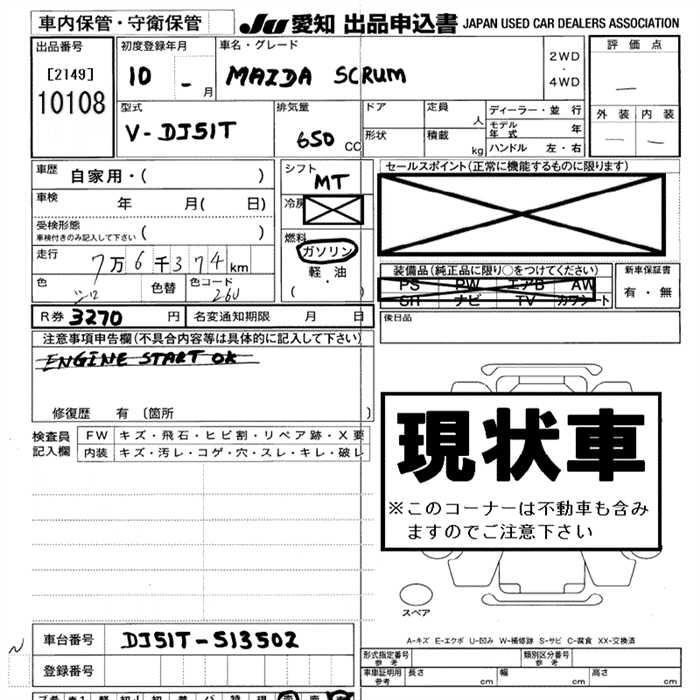 車内保管・守衛保管 JU 愛知 出品申込書 JAPAN USED CAR DEALERS ASSOCIATION
出品番号 初度登録年月 車名・グレード 評価点
[2149] 10 - 月 MAZDA SCRUM 2WD・4WD —
10108
型式 排気量 ドア 定員 ディーラー・並行 外装 内装
V-DJ51T 650 CC 人 モデル年式 年 — —
形状 積載 kg ハンドル 左・右
車歴 自家用・( ) シフト MT セールスポイント(正常に機能するものに限ります)
車検 年 月( 日) 冷房
受検形態 車検付きのみ記入して下さい ( ) 燃料
走行 7万6千374km ガソリン
軽・油
( )
装備品(純正品に限り○をつけてください) 新車保証書
PS PW エアB AW 有・無
SR ナビ TV カワシート
色 シロ 色替 色コード 26U
R券 3270 円 名変通知期限 月 日 後日品
注意事項申告欄(不具合内容等は具体的に記入して下さい)
ENGINE START OK
修復歴 有 (箇所 )
現状車
※このコーナーは不動車も含み
ますのでご注意下さい
検査員 FW キズ・飛石・ヒビ割・リペア跡・X要
記入欄 内装 キズ・汚レ・コゲ・穴・スレ・キレ・破レ
スペア
車台番号 DJ51T-513502
登録番号
A-キズ E-エクボ U-凹み W-補修跡 S-サビ C-腐食 XX-交換済
形式指定番号 参考 類別区分番号 参考
車車証明用 参考 長さ cm 幅 cm 高さ cm